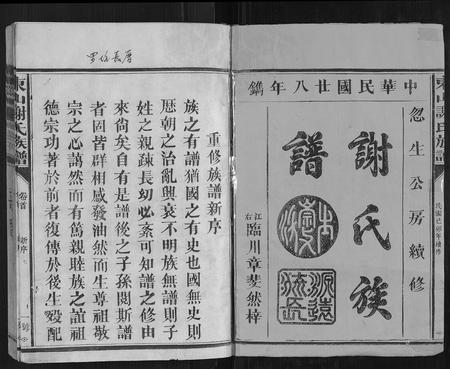 中華民國廿八年鐫
忽生公房續修
謝氏族
譜
江右臨川章斐然梓
源遠流長
東山謝氏族譜
民國己卯年續修
重修族譜新序
族之有譜猶國之有史也國無史則
歷朝之治亂興衰不明族無譜則子
姓之親疎長幼必紊可知譜之修由
來尚矣自有是譜後之子孫閱斯譜
者固皆群相感發油然而生尊祖敬
宗之心藹然而有篤親睦族之誼祖
德宗功著於前者復傳於後生㛮配
東山謝氏族譜
卷首
新序